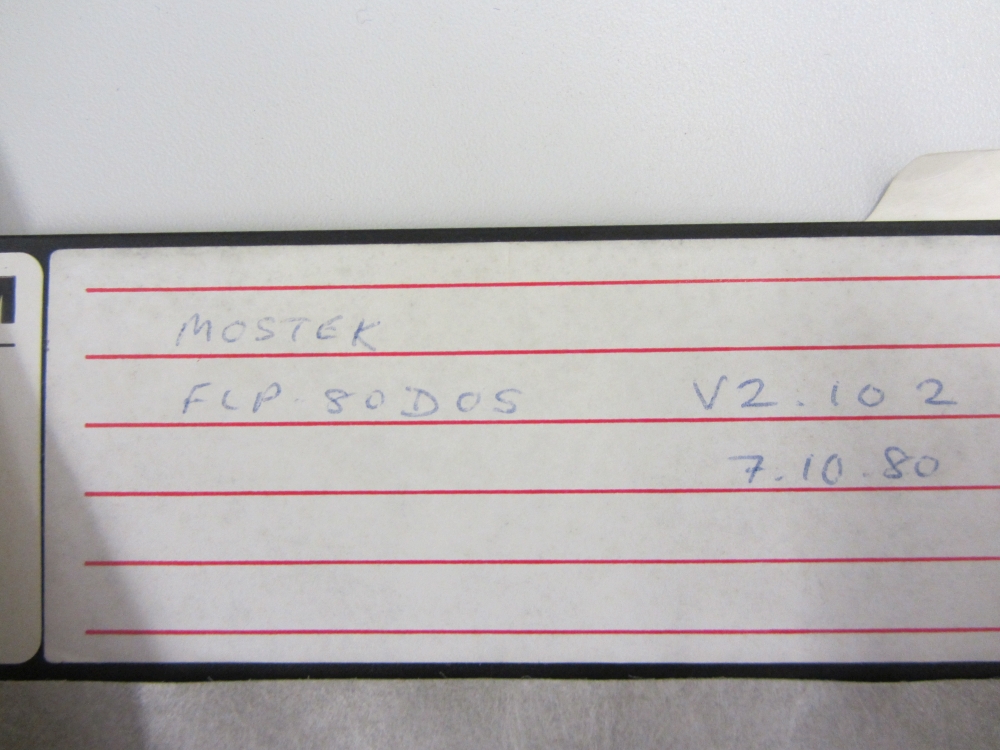 MOSTEK
FLP. 80DOS V2.102
7.10.80